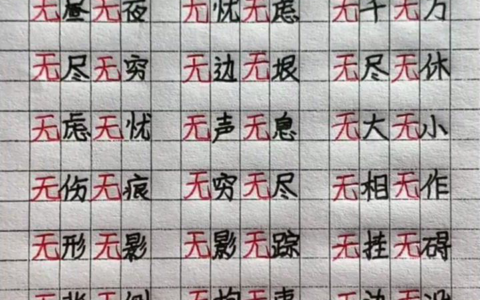 无昼无夜 无忧无虑 无千无万
无尽无穷 无边无垠 无尽无休
无虑无忧 无声无息 无大无小
无伤无痕 无穷无尽 无相无作
无形无影 无影无踪 无挂无碍
无 无 无拘无束 无边无